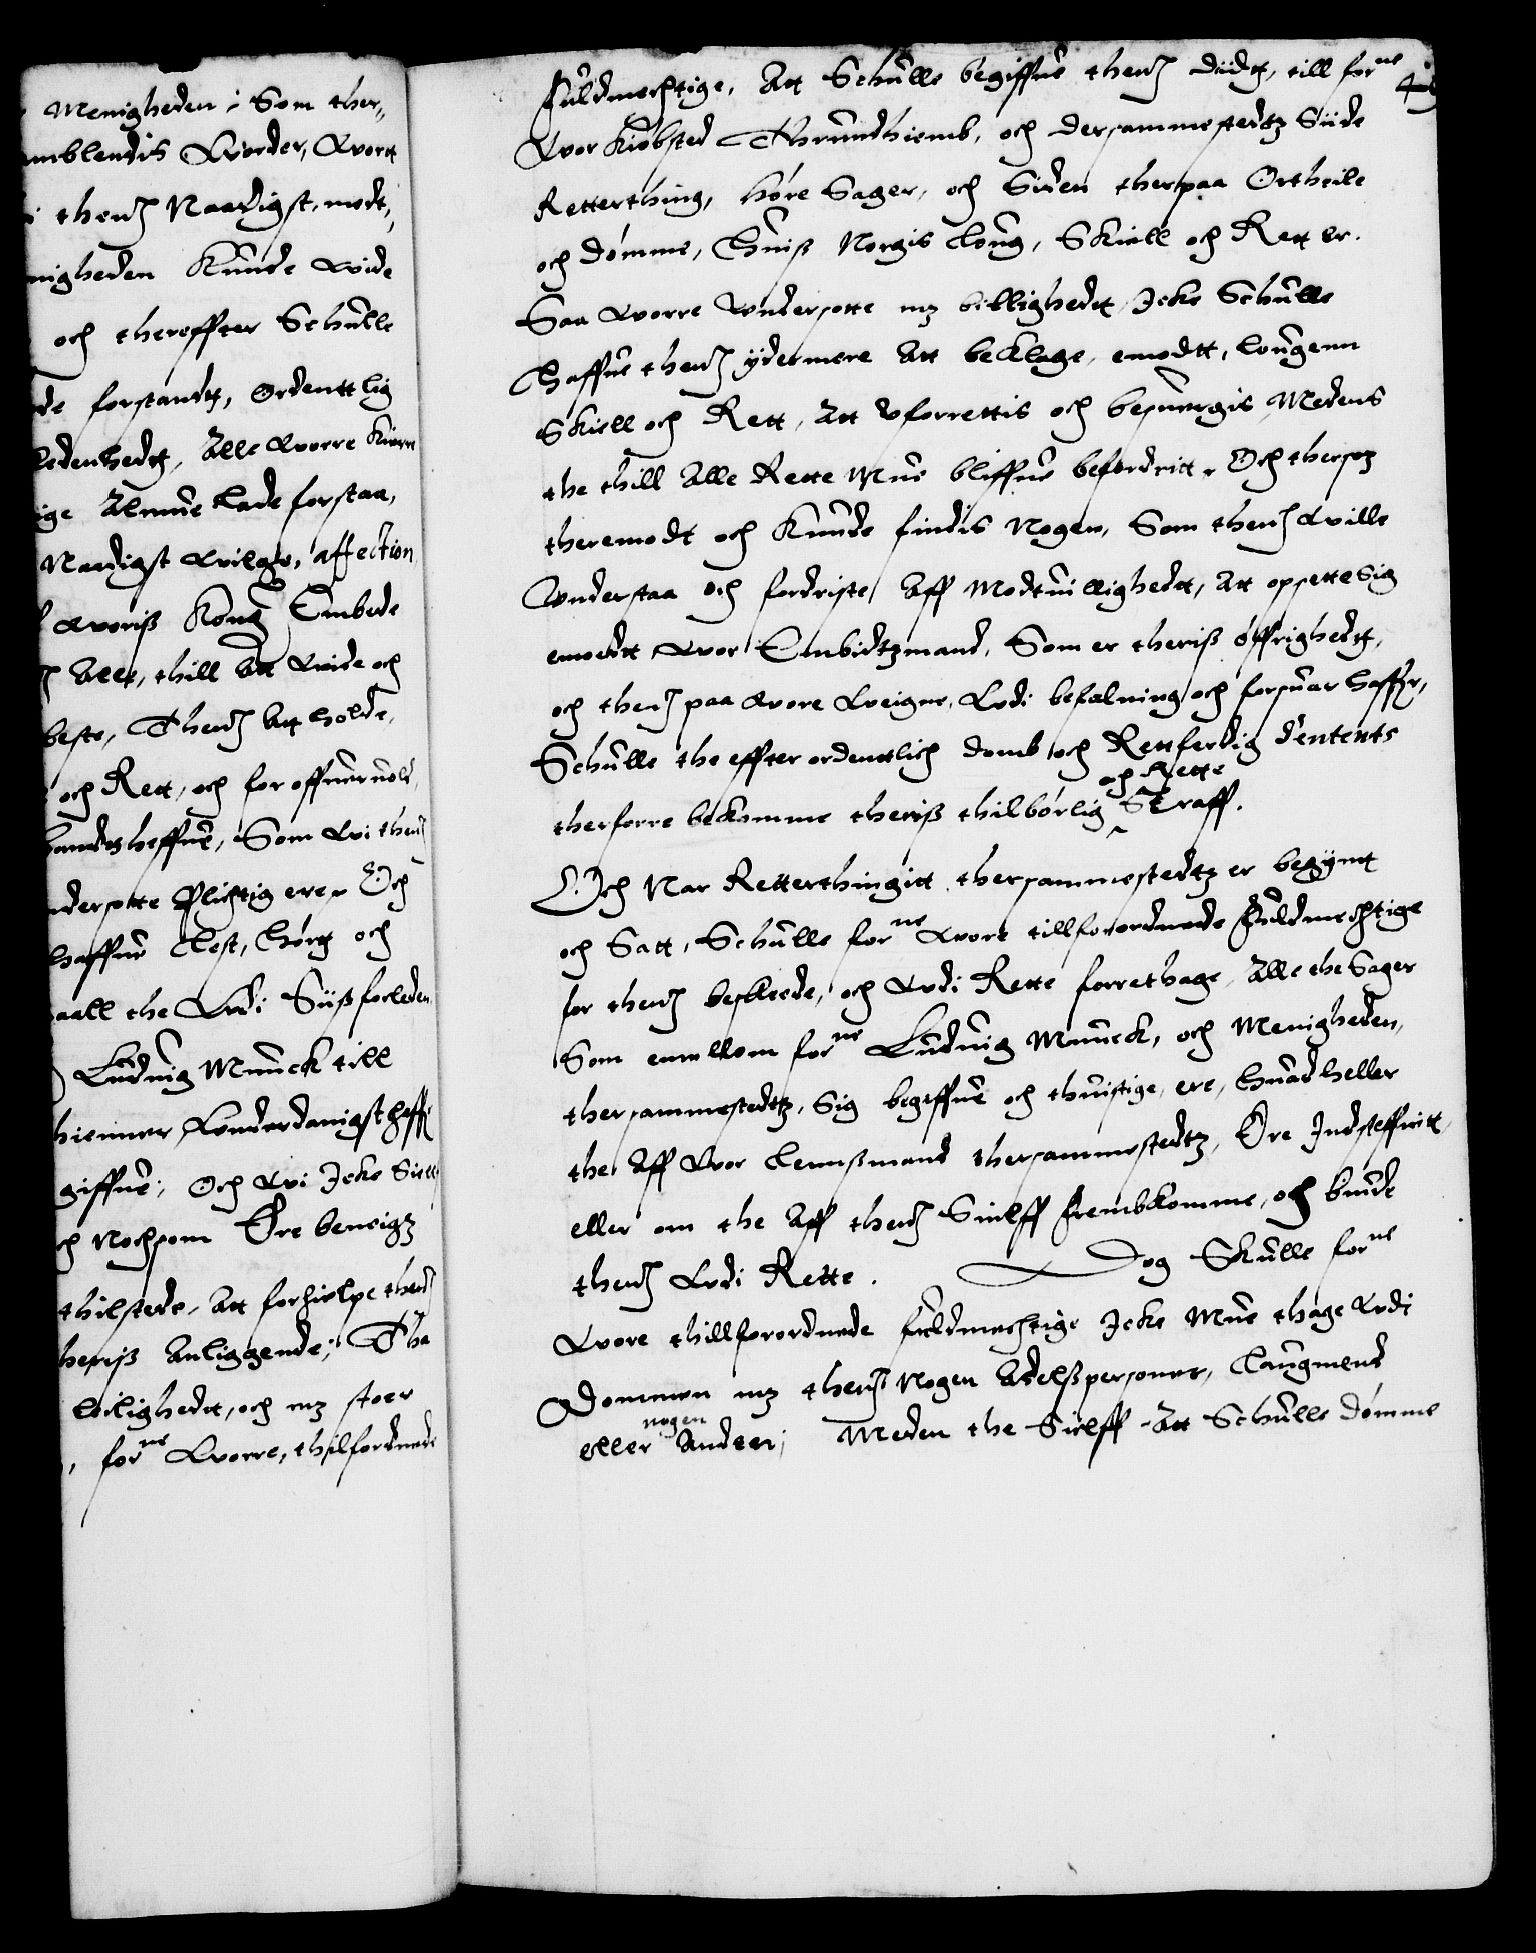 Menigheden; Som ther,,
mblendis Worder, Wort
thend Naadigst, modt,
nigheden Kunde wide
och thereffter Schulle
de forstandt, Ordenttlig
ledenhedt, Alle Worre Kierre
ige Almue Lade forstaa,
Naadigst Wilge, affection
Woriß Kong: Embede
Alle, thill Att Wide och
beste, Thend Att holde,
och Rett, och for offueruold,
landes heffue, Som Wi thend
ndersotte Plichtig ere. Och
haffue Lest, Hørt och
aall the Wdi Siist forleden
Luduig Munck till
hiemmer Wnderdanigst haffr
giffue; Och Wi Icke Siell
ch Nochsom Ere beueigt
thilstede, Att forhielpe thend
theriß Anliggende; Tha
leilighedt, och mz stoer
forne Worre, thilfordnede
Fuldmechtige, Att Schulle begiffue thend didt, till forne
Wor Kiøbsted Thrundhiemb, och dersammestedtz Siide
Retterthing, høre Sager, och Siden therpaa Ortheile
och dømme, Huiß Norgis Loug, Skiell och Rett er.
Saa Worre Wndersotte mz billighedt Icke Schulle
Haffue thend ydermere Att beklage, emodtt, Lougenn
Skiell och Rett, Att Uforrettis och besuergis Medens
the thill Alle Rette Mue bliffue befordritt. Och thersom
theremodt och Kunde findis Nogen, Som thend Wille
Wnderstaa och fordriste Aff Modtuillighedt, Att opsette sig
emodtt Wor Embidtzmand, Som er theriß øffrighedt,
och thend paa Wore Weigne, Wdi befalning och forsuar haffr,
Schulle the effter ordenttlich domb och Rettferdig Sententz
och Rette
therforre bekomme theriß thilbørlig Straff.
Och Nar Retterthingitt thersammestedtz er begynt
och Satt, Schulle forne Wore tillforordnede Fuldmechtige
for thend beskeede, och Wdi Rette forrethage, Alle the Sager
Som emellom forne Luduig Munck, och Menigheden,
thersammestedtz, Sig begiffue och thuistige, ere, Huad heller
the Aff Wor Lennßmand thersammestedtz, Ere Indsteffnitt
eller om the Aff thend Sielff frembkomme, och biude
thend Wdi Rette. Dog Skulle forne
Wore thillforordnede fuldmechtige Icke Mue thage Wdi
Dommen mz thend Nogen Adelßpersoner, Laugmend
nogen
eller Anden; Meden the Sielff Att Schulle Dømme